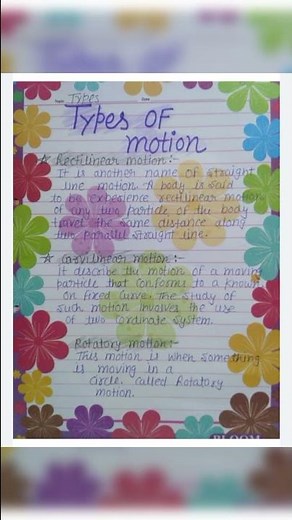 Types
Date
Types OF
motion
☆ Rectilinear motion:-
It is another name of straight
line motion. A body is said
to be experience rectilinear motion
of any two particle of the body
travel the same distance along
two parallel straight line.
☆ motion:-
It describe the motion of a moving
particle that conforms to a known
on fixed curve. The study of
such motion involves the use
of two Cordinate system.
Rotatory motion:-
This motion is when something
is moving in a
Circle. called Rotatory
motion.